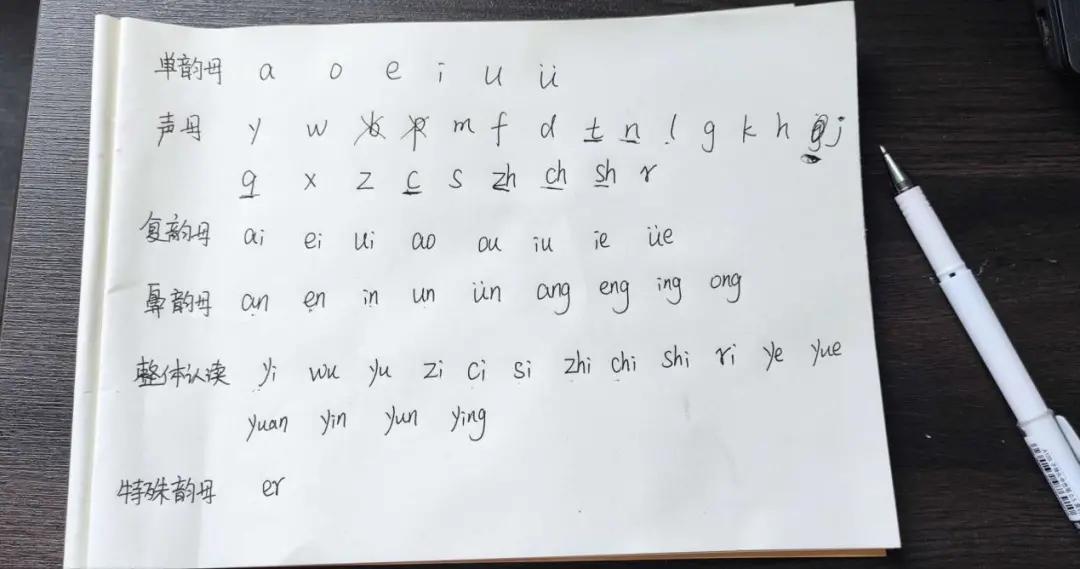 单韵母 a o e i u ü
声母 y w b p m f d t n l g k h j
q x z c s zh ch sh r
复韵母 ai ei ui ao ou iu ie üe
鼻韵母 an en in un ün ang eng ing ong
整体认读 yi wu yu zi ci si zhi chi shi ri ye yue
yuan yin yun ying
特殊韵母 er